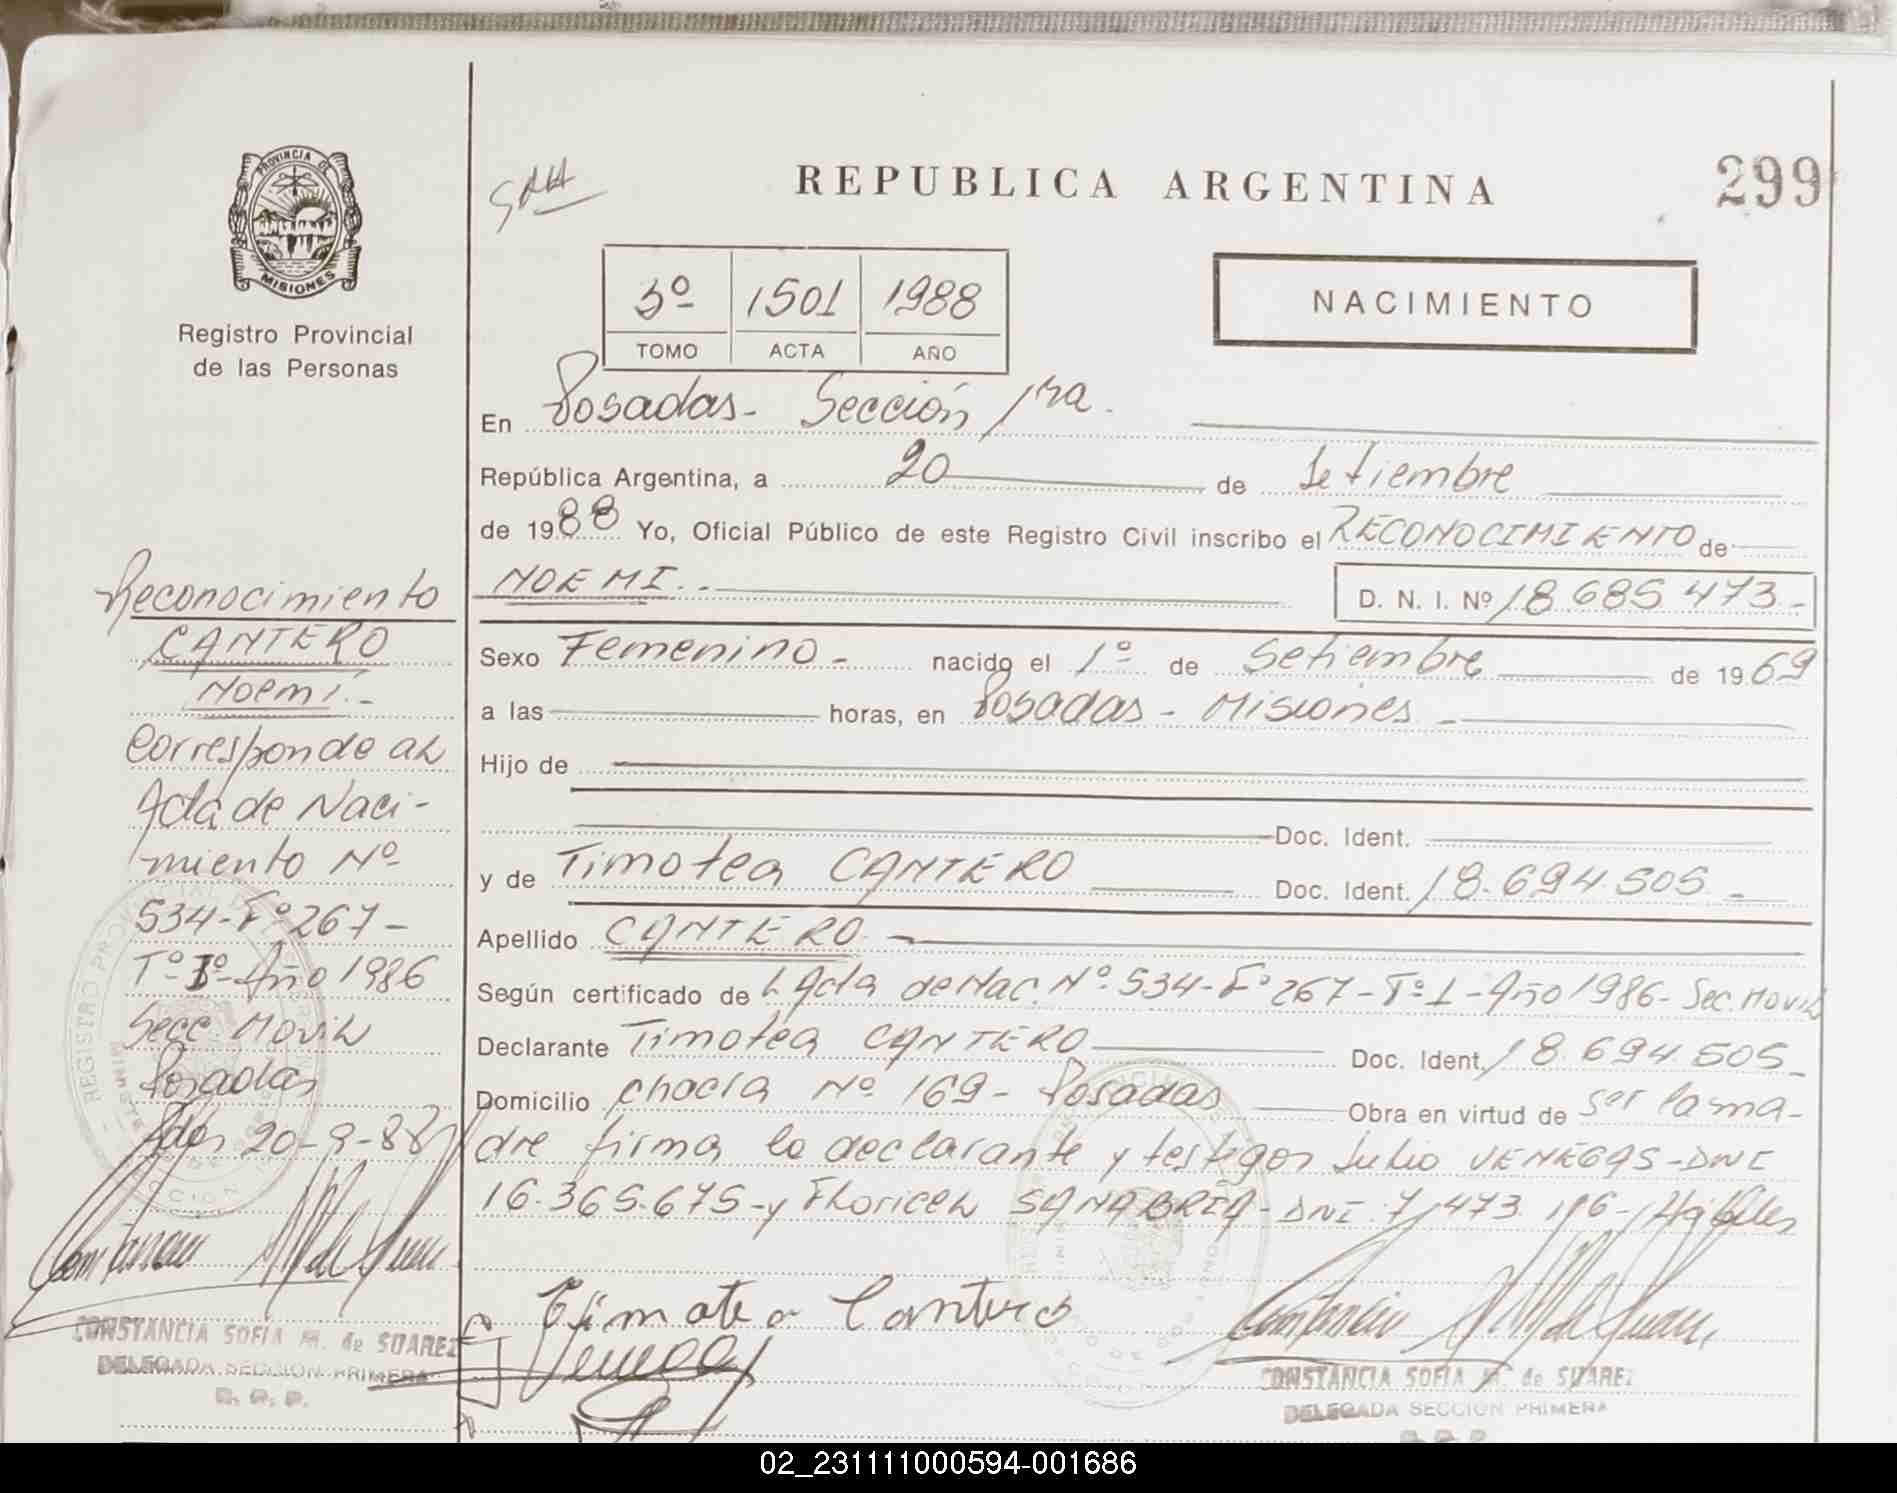 REPUBLICA ARGENTINA
299
PROVINCIA DE
MISIONES
Registro Provincial
de las Personas
3º 1501 1988
TOMO ACTA AÑO
NACIMIENTO
En Posadas- Sección 1ra.
República Argentina, a 20 de Setiembre
de 1988 Yo, Oficial Público de este Registro Civil inscribo el RECONOCIMIENTO de
NOEMI.- D. N. I. Nº 18.685.473-
Sexo Femenino- nacido el 1º de Setiembre de 1969
a las horas, en Posadas - Misiones -
Hijo de
Doc. Ident.
y de Timotea CANTERO Doc. Ident. 18.694.505-
Apellido CANTERO-
Según certificado de L Acta de Nac. Nº 534-Fº267-Tº1-Año 1986- Sec. Movil
Declarante Timotea CANTERO Doc. Ident. 18.694.505-
Domicilio chacra Nº 169- Posadas Obra en virtud de ser la ma-
dre firma la declarante y testigos Julio VENEGAS-DNI
16.365.675-y Floricel SANABRIA-DNI 7.473.
Timotea Cantero
CONSTANCIA SOFIA M. de SUAREZ
DELEGADA SECCION PRIMERA
R. P. P.
Reconocimiento
CANTERO
Noemí.-
Corresponde al
Acta de Naci-
miento Nº
534-Fº267-
Tº1º-Año 1986
Secc Movil
Posadas
Pdas 20-9-88
CONSTANCIA SOFIA M. de SUAREZ
DELEGADA SECCION PRIMERA
R. P. P.
02_231111000594-001686